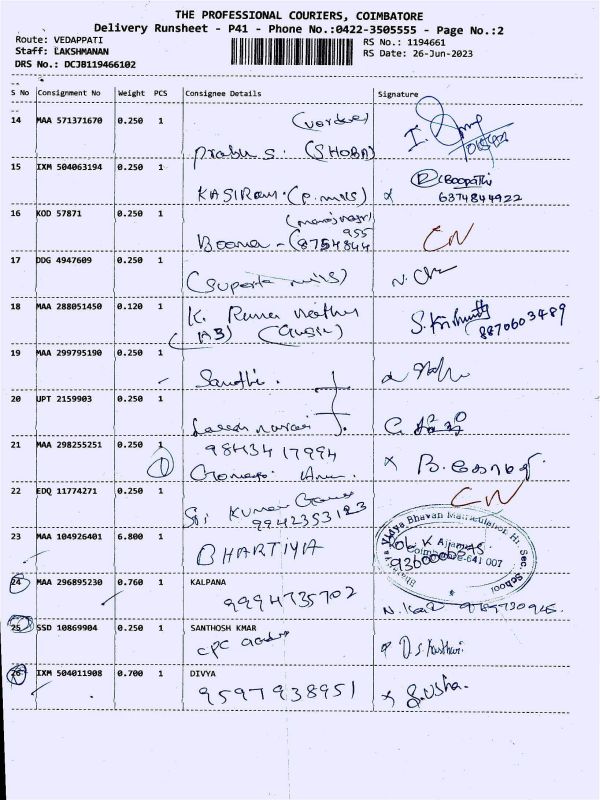 THE PROFESSIONAL COURIERS, COIMBATORE
Delivery Runsheet - P41 - Phone No.:0422-3505555 - Page No.:2
Route: VEDAPPATI
Staff: LAKSHMANAN
DRS No.: DCJB119466102
RS No.: 1194661
RS Date: 26-Jun-2023
S No Consignment No Weight PCS Consignee Details Signature
14 MAA 571371670 0.250 1
Prabu S. (SHOBA)
15 IXM 504063194 0.250 1
KASIRam. (P. mills) x Boopathi
6374844922
16 KOD 57871 0.250 1
955
Boona - (8754844 CN
17 DDG 4947609 0.250 1
(Superta mills)
18 MAA 288051450 0.120 1 K.
(A3) 8870603489
19 MAA 299795190 0.250 1
Sandhi.
20 UPT 2159903 0.250 1
21 MAA 298255251 0.250 1 98434 17994
1
22 EDQ 11774271 0.250 1 CN
Sri Kumar
9942353123
23 MAA 104926401 6.800 1 BHARTIYA
Vidya Bhavan Matriculation Hr. Sec. School
Coimbatore-641 007
24 MAA 296895230 0.760 1 KALPANA
9994735702
25 SSD 10869904 0.250 1 SANTHOSH KMAR
CPC D.S. Kasthuri
26 IXM 504011908 0.700 1 DIVYA
9597938951 x S. Usha.